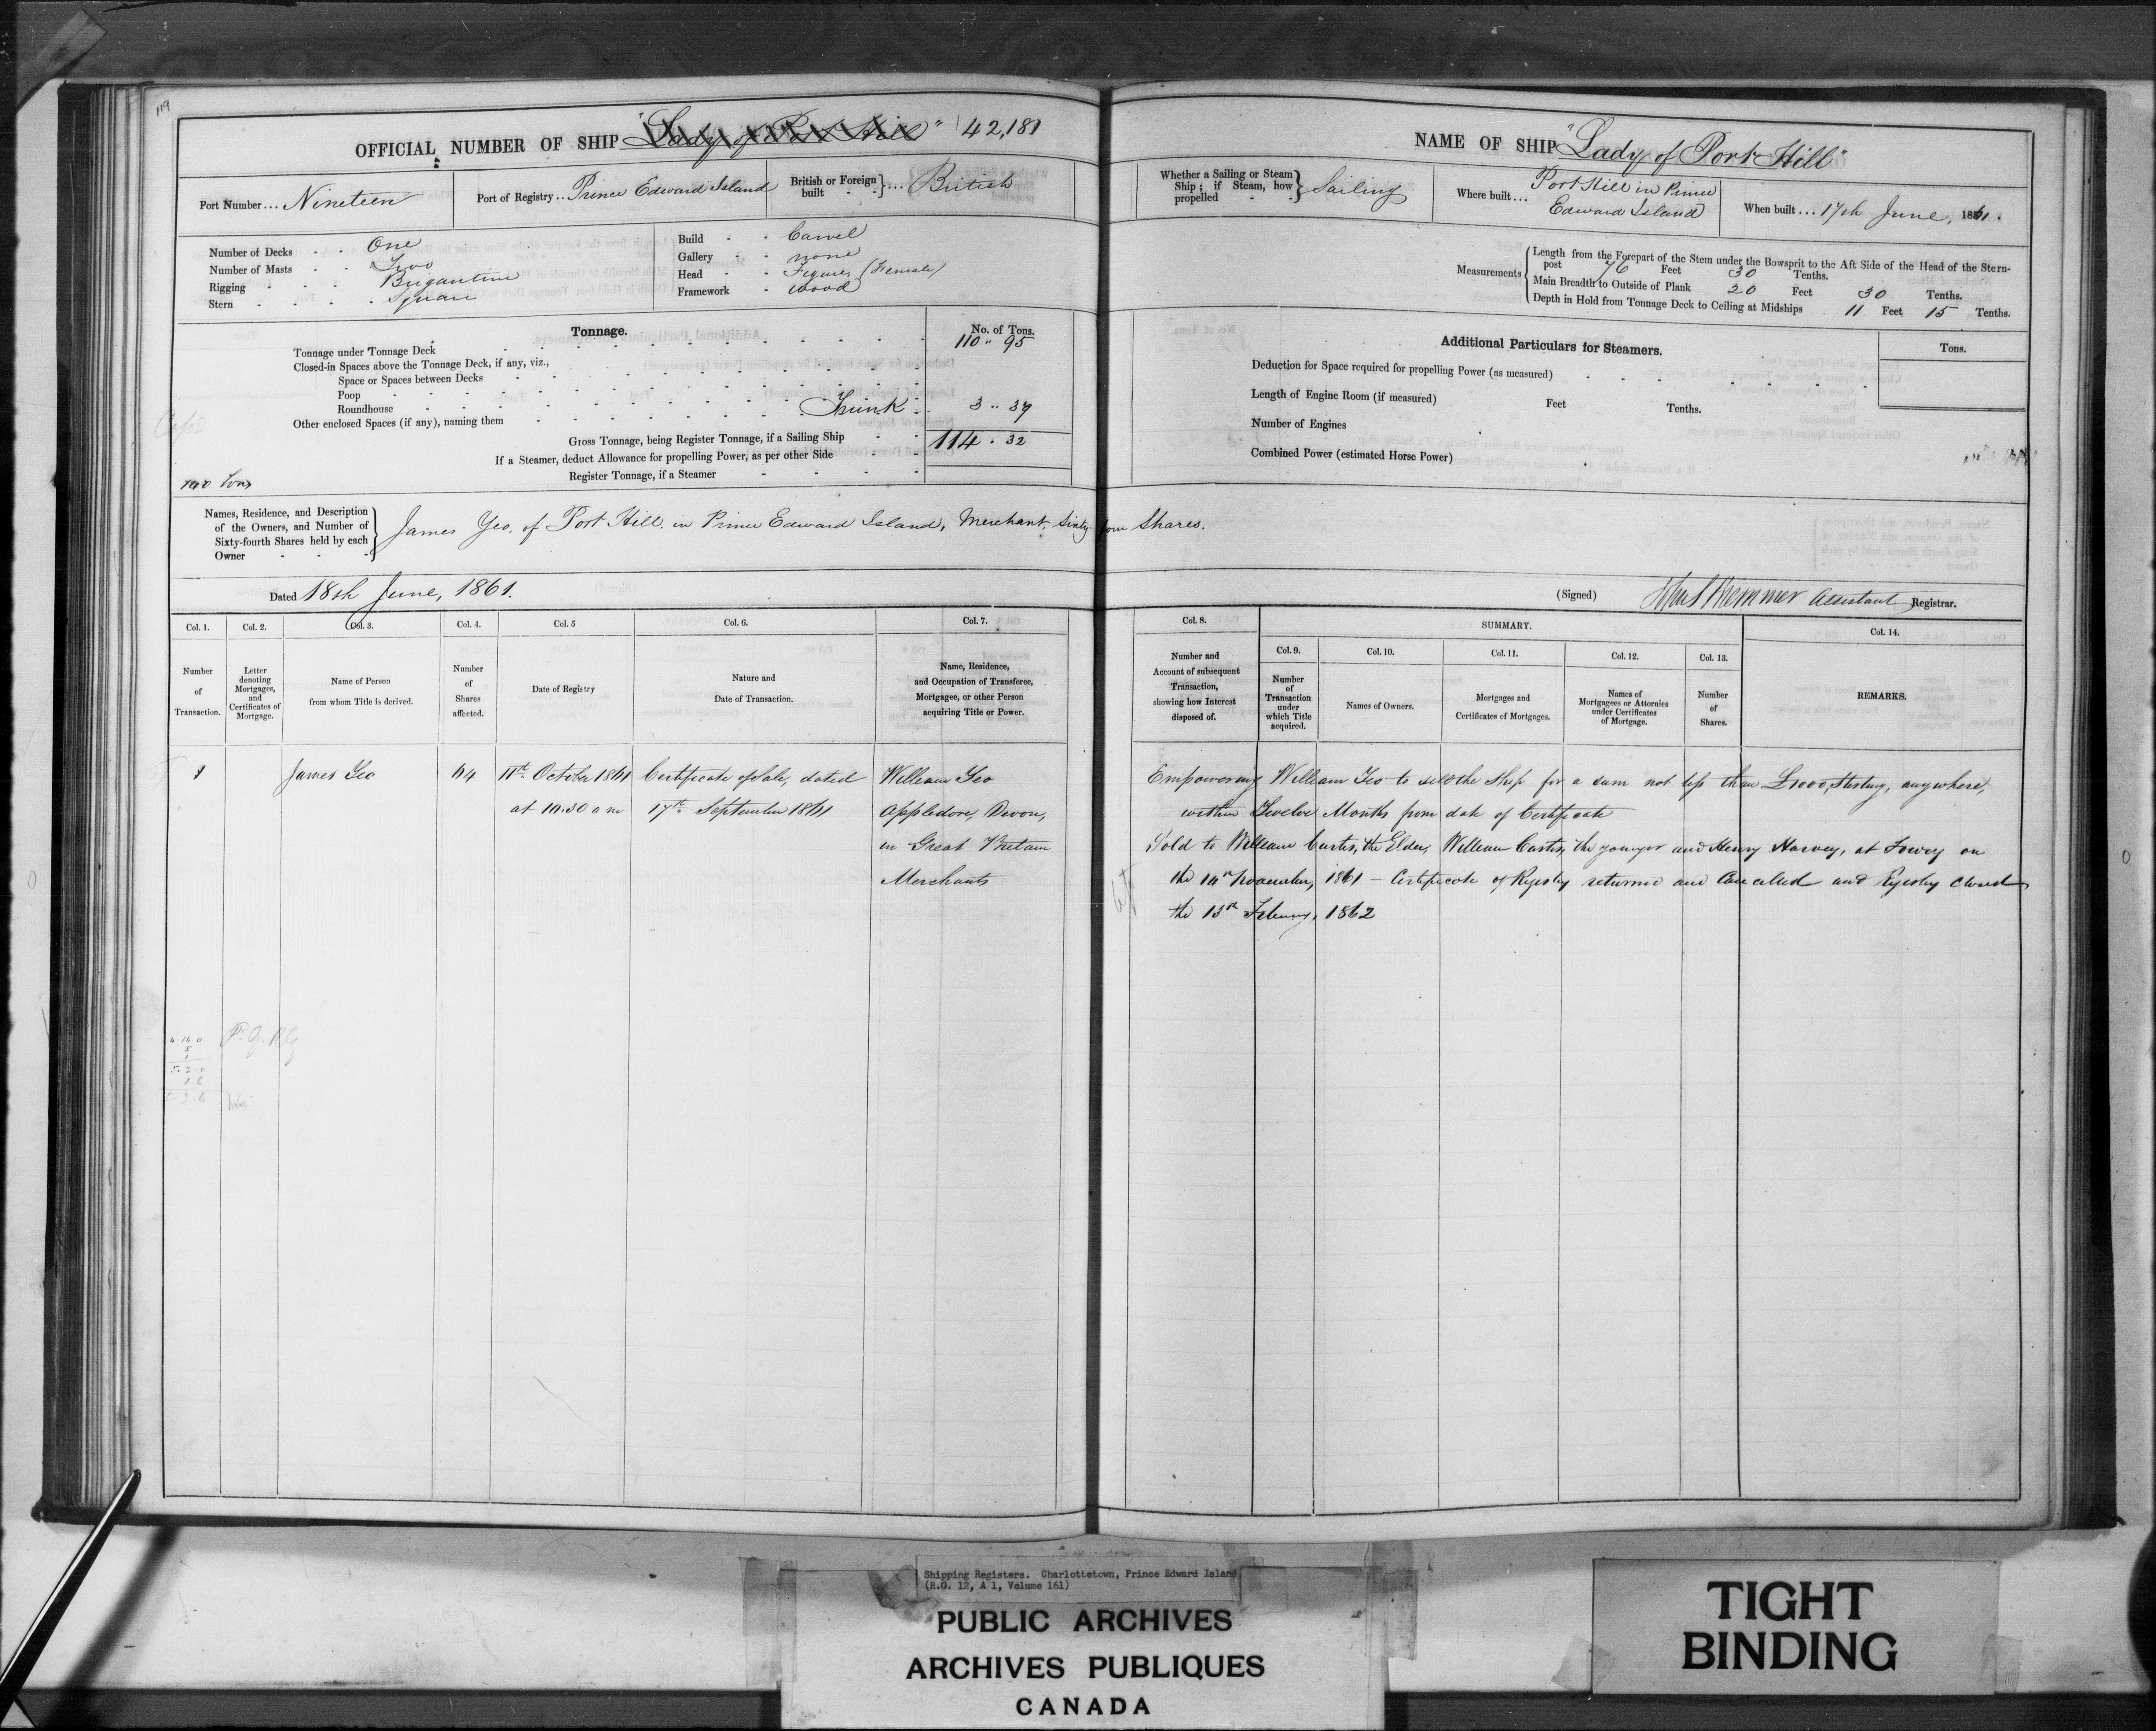 119
OFFICIAL NUMBER OF SHIP "Lady of Port Hill" 42,181
Port Number... Nineteen
Port of Registry.. Prince Edward Island
British or Foreign built - -}... British
Number of Decks - - One
Number of Masts - - Two
Rigging - - - Brigantine
Stern - - - - Square
Build - - Carvel
Gallery - - none
Head - - Figure (Female)
Framework - wood
Tonnage.
No. of Tons.
Tonnage under Tonnage Deck 110 " 95
Closed-in Spaces above the Tonnage Deck, if any, viz.,
Space or Spaces between Decks
Poop
Roundhouse
Other enclosed Spaces (if any), naming them Trunk 3 " 37
Gross Tonnage, being Register Tonnage, if a Sailing Ship 114 . 32
If a Steamer, deduct Allowance for propelling Power, as per other Side
Register Tonnage, if a Steamer
Names, Residence, and Description of the Owners, and Number of Sixty-fourth Shares held by each Owner
James Yeo, of Port Hill in Prince Edward Island, Merchant. Sixty four Shares.
Dated 18th June, 1861.
NAME OF SHIP "Lady of Port Hill"
Whether a Sailing or Steam Ship; if Steam, how propelled - -} Sailing
Where built... Port Hill in Prince
Edward Island
When built... 17th June, 1861.
Measurements
Length from the Forepart of the Stem under the Bowsprit to the Aft Side of the Head of the Stern-
post 76 Feet 30 Tenths.
Main Breadth to Outside of Plank 20 Feet 30 Tenths.
Depth in Hold from Tonnage Deck to Ceiling at Midships 11 Feet 15 Tenths.
Additional Particulars for Steamers.
Tons.
Deduction for Space required for propelling Power (as measured)
Length of Engine Room (if measured) Feet Tenths.
Number of Engines
Combined Power (estimated Horse Power)
(Signed) Assistant Registrar.
Col. 1.
Number of Transaction.
Col. 2.
Letter denoting Mortgages, and Certificates of Mortgage.
Col. 3.
Name of Person from whom Title is derived.
Col. 4.
Number of Shares affected.
Col. 5
Date of Registry
Col. 6.
Nature and Date of Transaction.
Col. 7.
Name, Residence, and Occupation of Transferee, Mortgagee, or other Person acquiring Title or Power.
Col. 8.
Number and Account of subsequent Transaction, showing how Interest disposed of.
SUMMARY.
Col. 9.
Number of Transaction under which Title acquired.
Col. 10.
Names of Owners.
Col. 11.
Mortgages and Certificates of Mortgages.
Col. 12.
Names of Mortgagees or Attornies under Certificates of Mortgage.
Col. 13.
Number of Shares.
Col. 14.
REMARKS.
1 James Yeo 64 11th October 1861 Certificate of Sale, dated William Yeo
at 10.30 am 17th September 1861 Appledore, Devon,
in Great Britain
Merchants
Empowering William Yeo to sell the Ship for a sum not less than £1000, Sterling, anywhere,
within Twelve Months from date of Certificate
Sold to William Curtis, the Elder, William Curtis, the younger and Henry Harvey, at Fowey on
the 14th November, 1861 - Certificate of Registry returned and Cancelled and Registry closed
the 13th February, 1862
4.14.0
5
1
5.2.0
1.6
5.3.6
Shipping Registers. Charlottetown, Prince Edward Island
(R.G. 12, A 1, Volume 161)
PUBLIC ARCHIVES
ARCHIVES PUBLIQUES
CANADA
TIGHT
BINDING